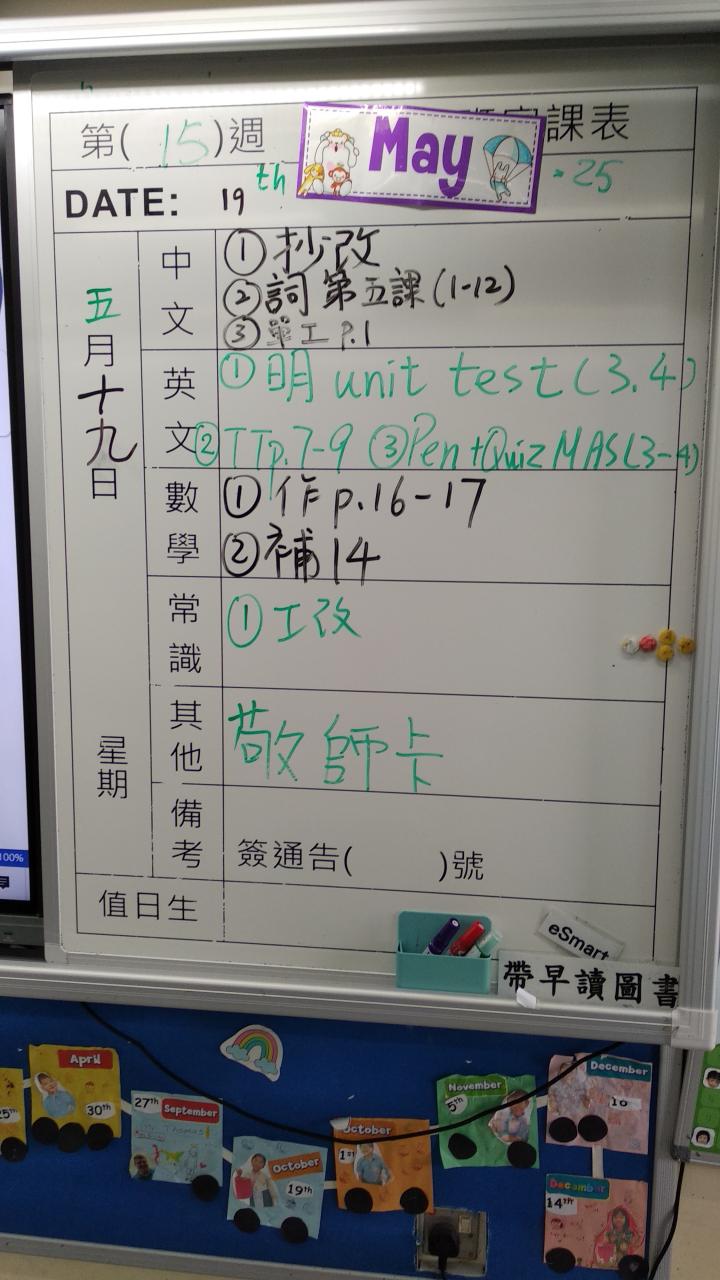 第(15)週
家課表
May
DATE: 19th
·25
五月十九日
星期
中文
①抄改
②詞 第五課(1-12)
③單工 p.1
英文
①明 unit test (3.4)
②TTp.7-9 ③Pen+Quiz MAS(3-4)
數學
①作 p.16-17
②補14
常識
①工改
其他
敬師卡
備考
簽通告( )號
值日生
eSmart
帶早讀圖書
100%
25th
April
30th
27th
September
October
19th
October
1st
November
5th
December
10
December
14th